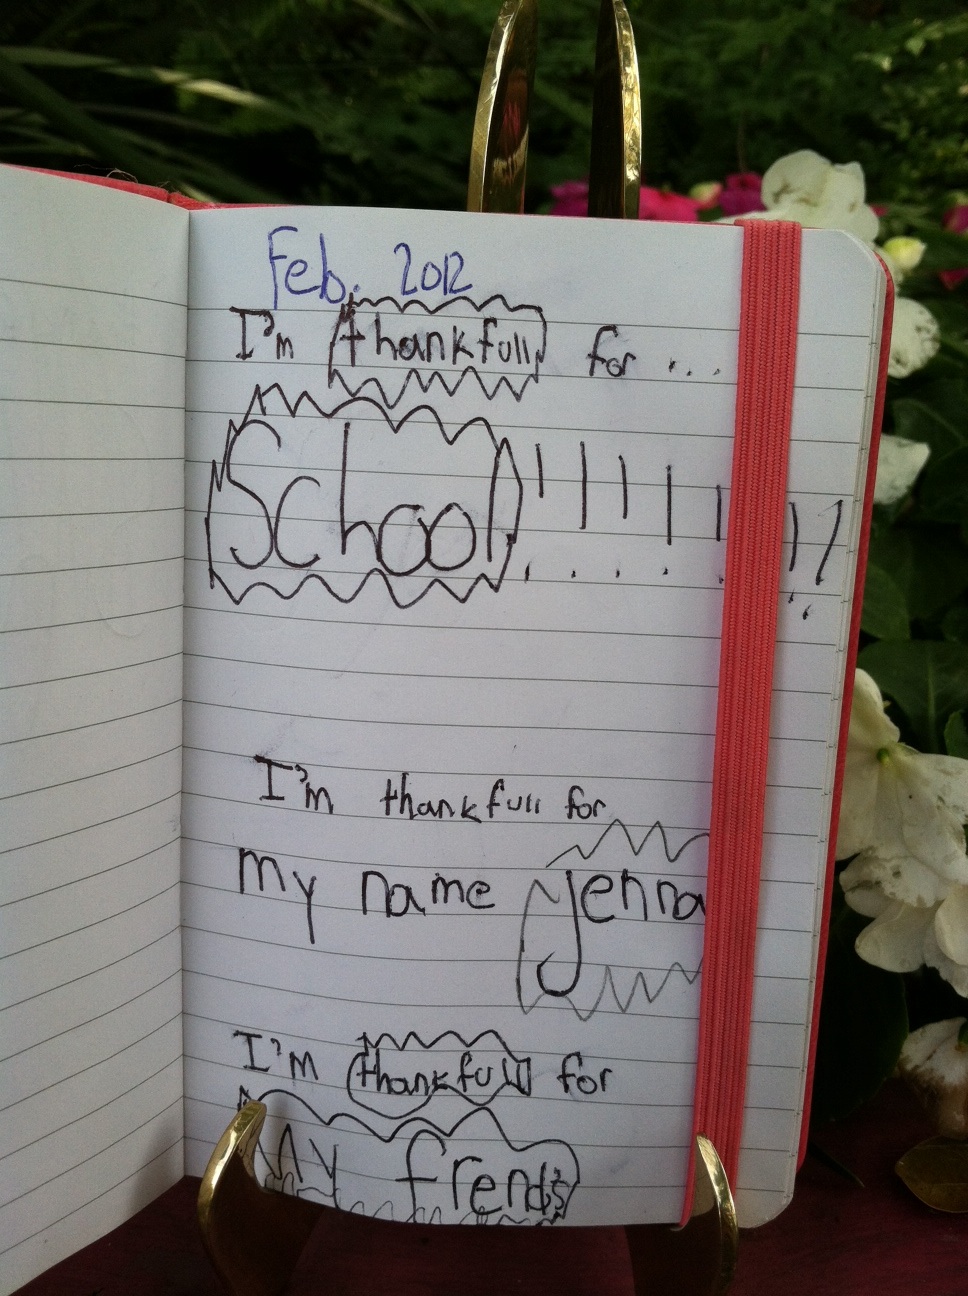 Feb. 2012
I'm thankfull for ...
School!!!!!!!
I'm thankfull for
my name jenna
I'm thankfull for
My frends